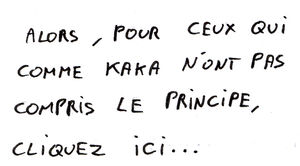 ALORS, POUR CEUX QUI
COMME KAKA N'ONT PAS
COMPRIS LE PRINCIPE,
CLIQUEZ ICI...